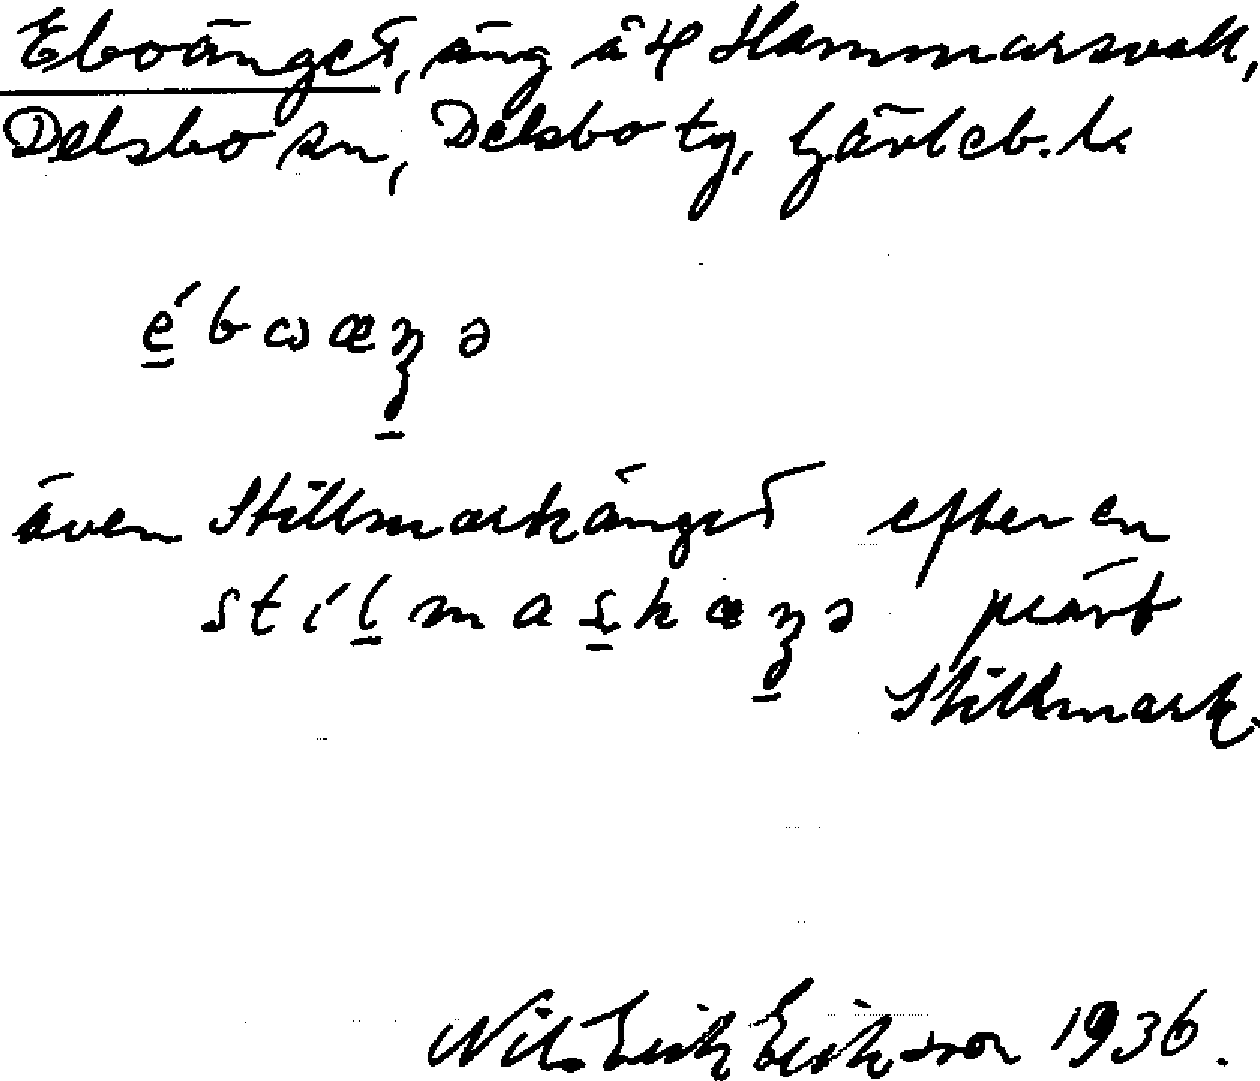 Eboänget, äng å 4 Hammarsvall,
Delsbo sn, Delsbo tg, Gävleb. l.
é b ω æ ȝ ə
även Stillmarkänget efter en
s t í l m a s k æ ȝ ə präst
Stillmark.
Nils Erik Eriksson 1936.